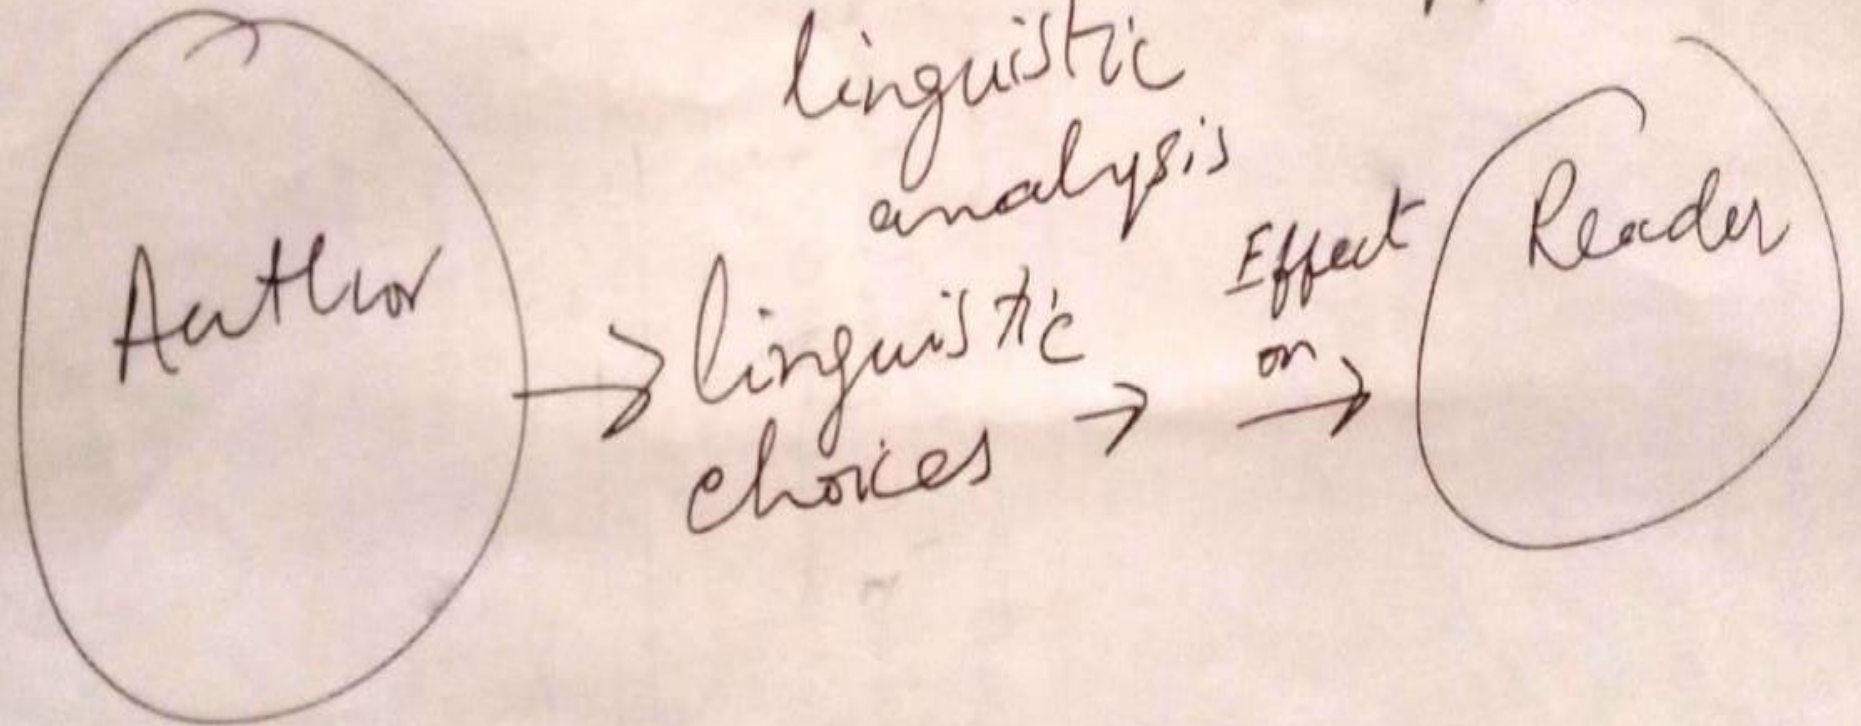 linguistic
analysis
Author
→ linguistic
choices →
Effect
on
→
Reader